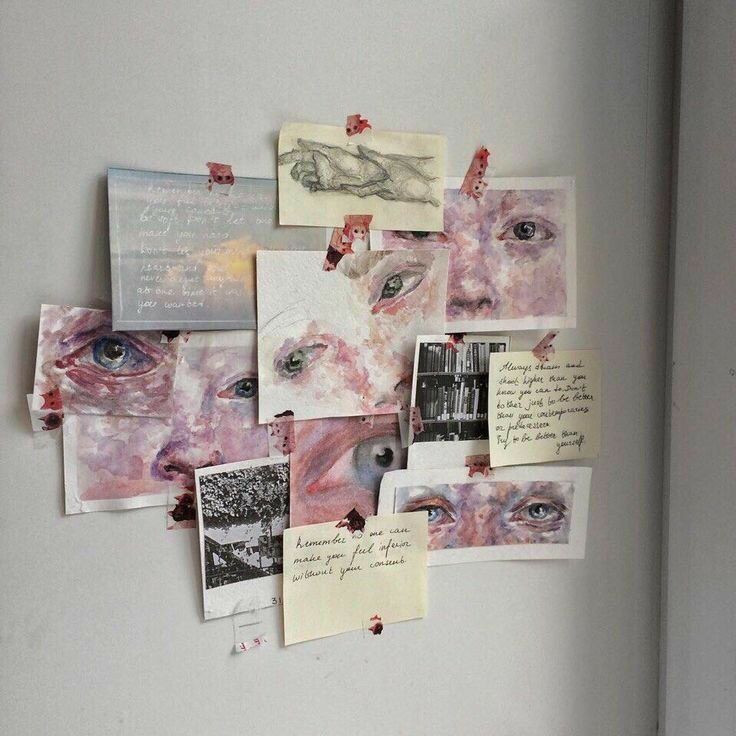 Remember
you
be soft. Don't let
make you hard.
Don't let
never
at one time it
you wanted.
Always dream and
shoot higher than you
know you can to. Don't
bother just to be better
than your contemporaries
or predecessors.
Try to be better than
yourself.
Remember no one can
make you feel inferior
without your consent.
31